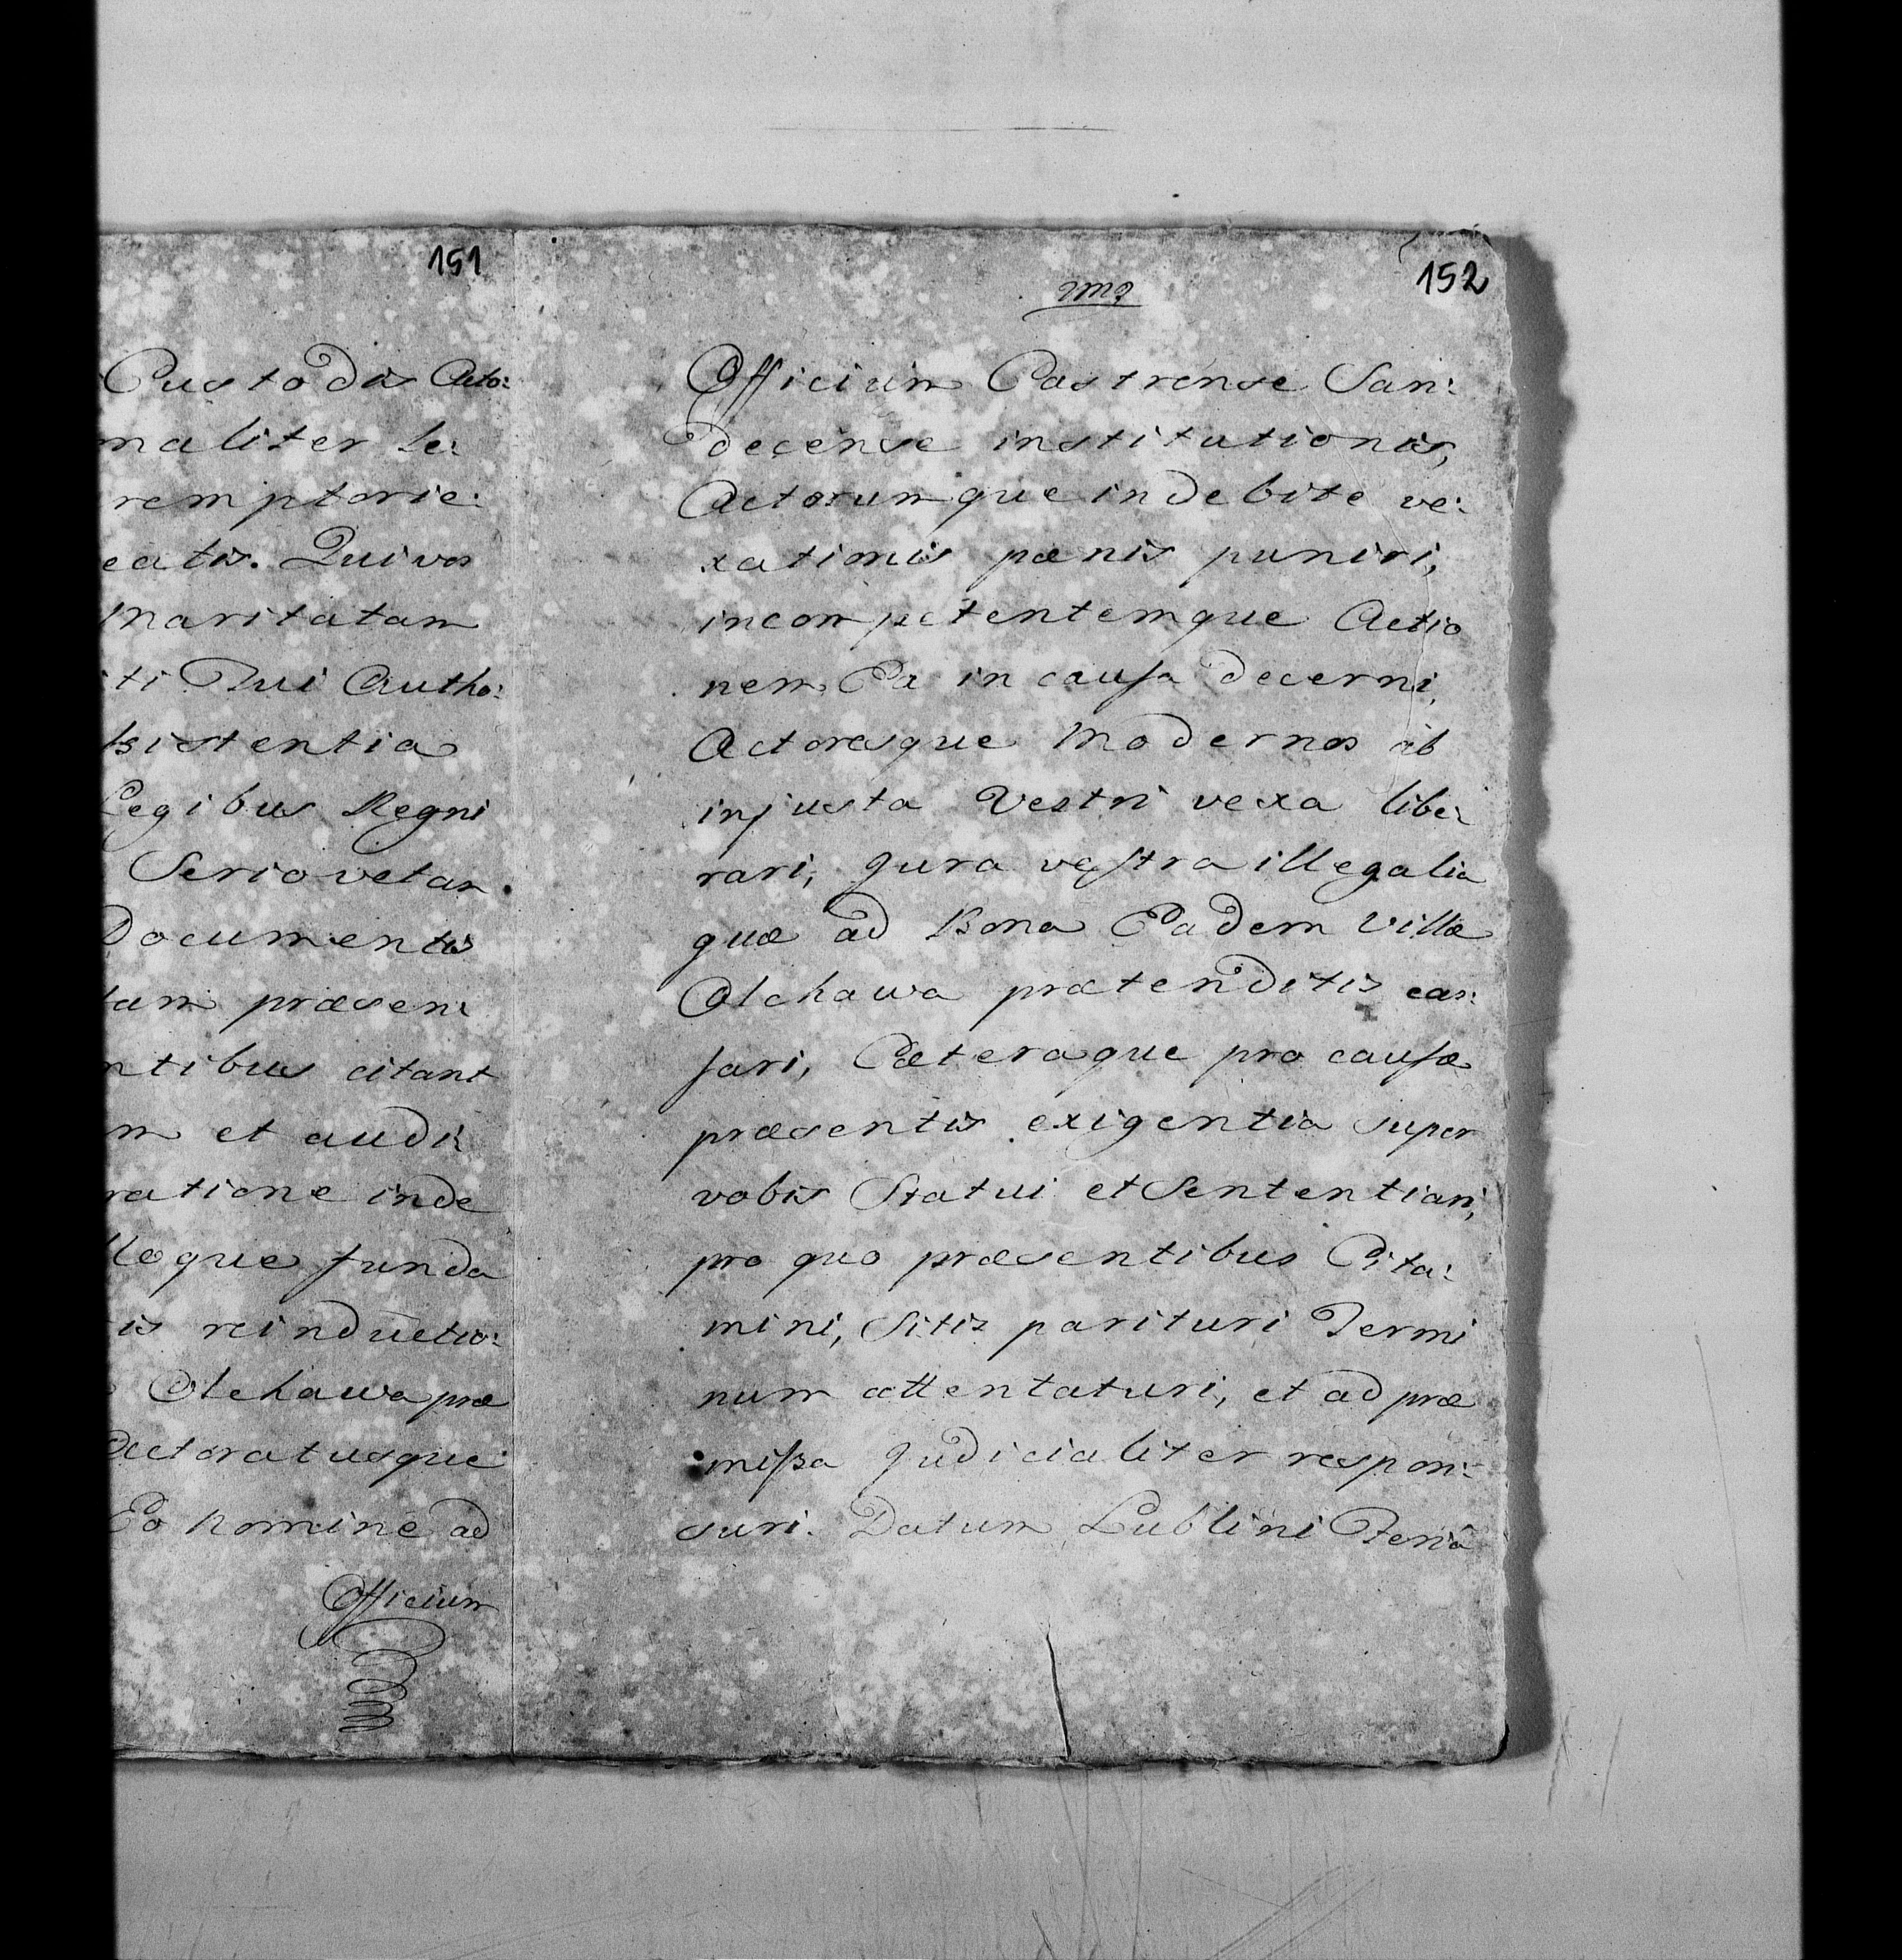 151
Custodis Acto:
maliter le:
remptorie:
eatis. Quivos
Maritatam
ti Sui Autho:
sistentia
Legibus Regni
Seriovetan
Documentis
tam præsen:
ntibus citant
m et audi:
ratione inde
loque funda
is reinductio:
Olchawa præ
Actoratusque
Eo Nomine ad
Officium
152
Officium Castrense San:
decense institutionis,
Actorumque indebite ve:
xationis pænis puniri,
incompetentemque Actio
nem Ea in causa decerni,
Actoresque Modernos ab
injusta Vestri vexa libe:
rari, Jura vestra illegalia
quæ ad Bona Eadem Villæ
Olchawa prætenditis cas:
sari, Cæteraque pro causæ
præsentis exigentia super
vobis Statui et Sententiari,
pro quo præsentibus Cita:
mini, Sitis parituri Termi
num attentaturi, et ad præ
missa Judicialiter respon:
suri. Datum Lublini Feria